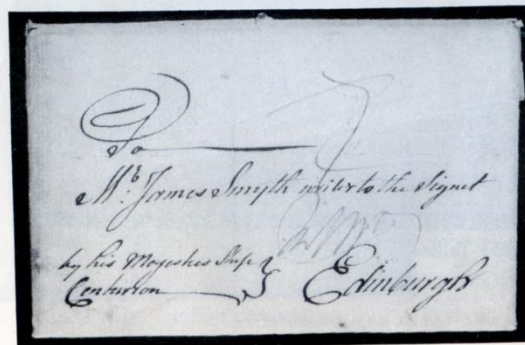 To
Mr. James Smyth writer to the Signet
by his Majesties Ship
Centurion
Edinburgh